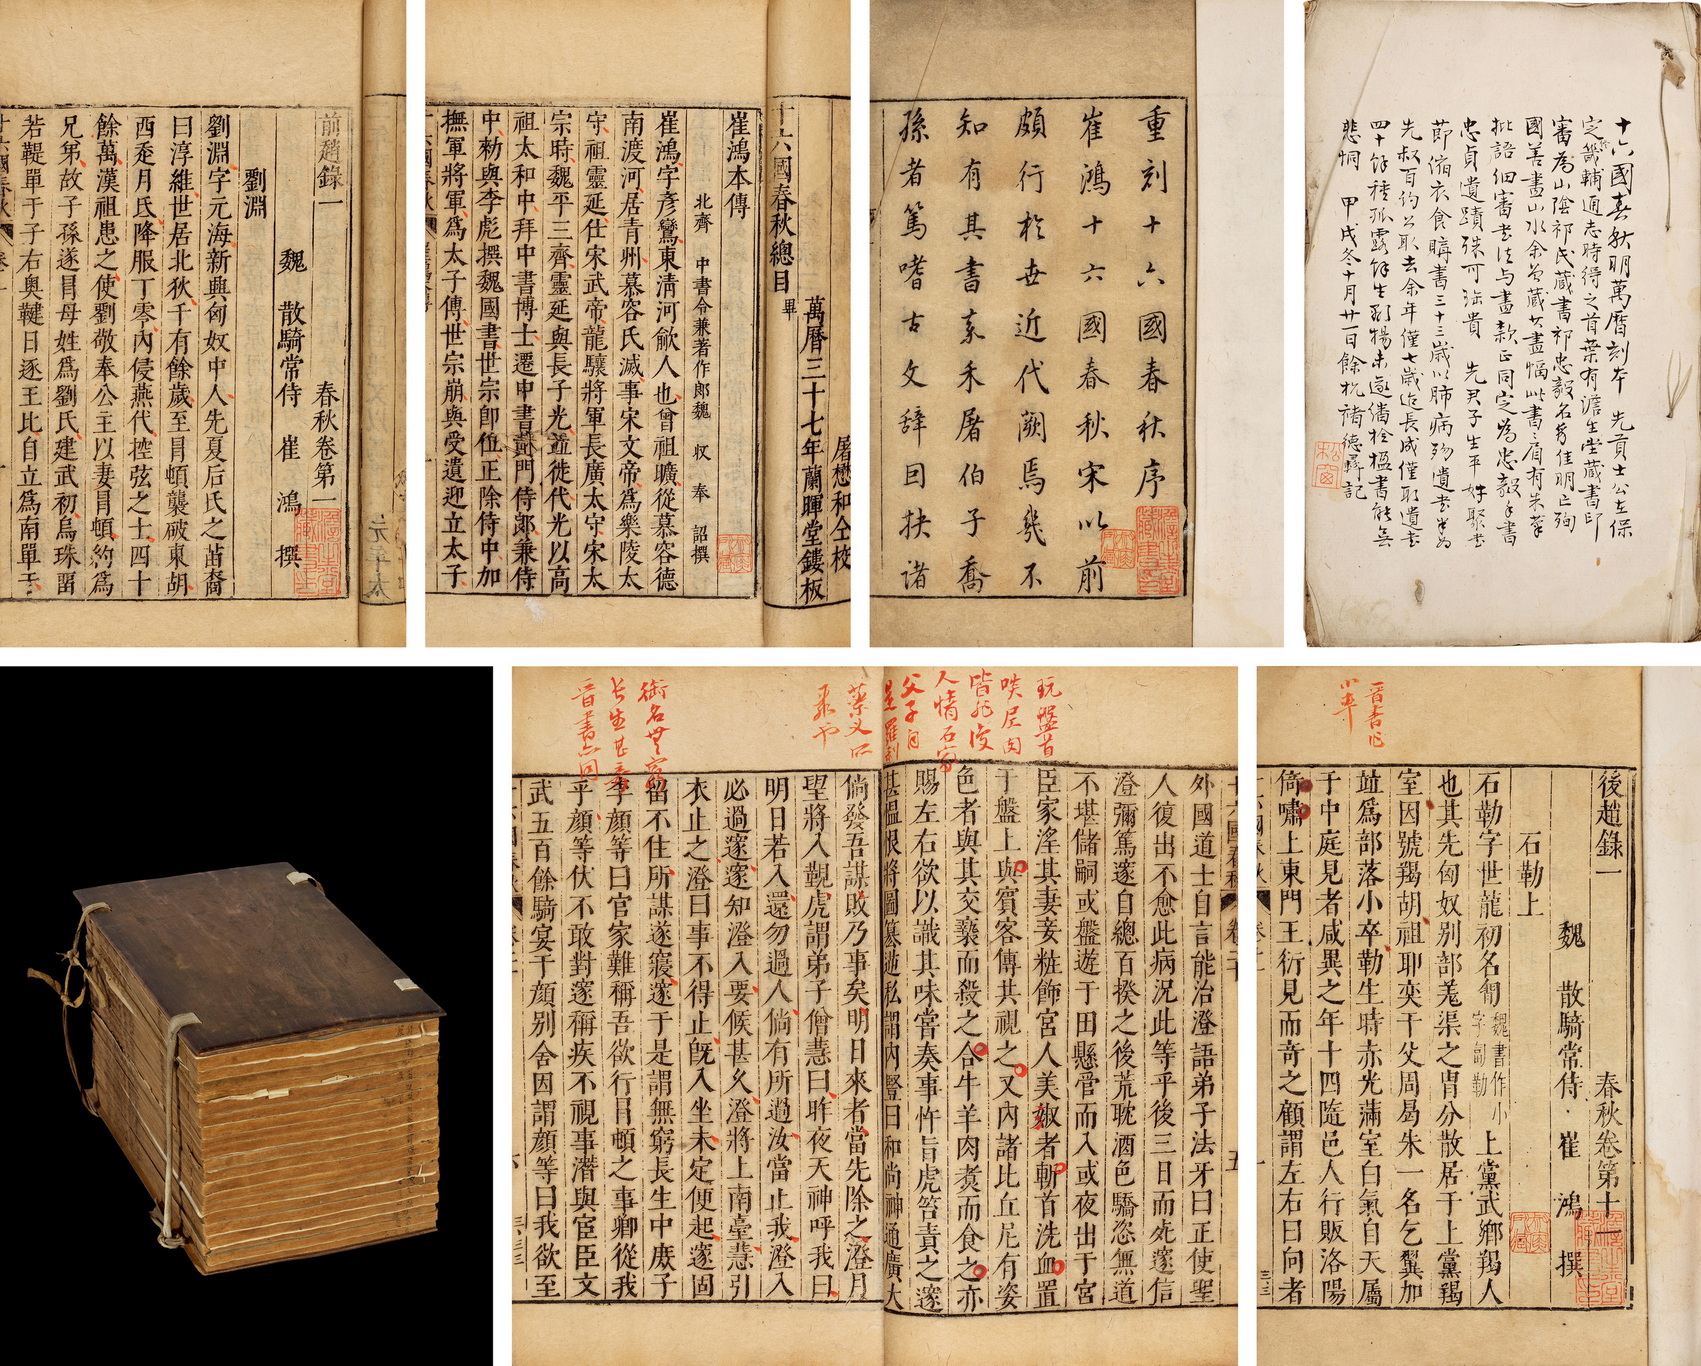 前趙錄一 春秋卷第一
魏 散騎常侍 崔 鴻 撰
劉淵
劉淵字元海新興匈奴中人先夏后氏之苗裔
曰淳維世居北狄千有餘歲至冒頓襲破東胡
西走月氏降服丁零內侵燕代控弦之士四十
餘萬漢祖患之使劉敬奉公主以妻冒頓約爲
兄弟故子孫遂冒母姓爲劉氏建武初烏珠留
若鞮單于子右奥鞬日逐王比自立爲南單于
屠懋和仝校
萬曆三十七年蘭暉堂鏤板
十六國春秋總目 畢
崔鴻本傳
北齊 中書令兼著作郎魏 收 奉 詔撰
崔鴻字彥鸞東清河鄃人也曾祖曠從慕容德
南渡河居青州慕容氏滅事宋文帝爲樂陵太
守祖靈延仕宋武帝龍驤將軍長廣太守宋太
宗時魏平三齊靈延與長子光並徙代光以高
祖太和中拜中書博士遷中書黃門侍郎兼侍
中勑與李彪撰魏國書世宗卽位正除侍中加
撫軍將軍爲太子傅世宗崩與受遺迎立太子
重刻十六國春秋序
崔鴻十六國春秋宋以前
頗行於世近代闕焉幾不
知有其書矣禾屠伯子喬
孫者篤嗜古文辭囙抉諸
十六國春秋明萬曆刻本 先貢士公在保
定畿輔通志時得之首葉有澹生堂藏書印
審爲山陰祁氏藏書祁忠毅名彪佳明亡殉
國善書山水余曾藏其畫幅此書眉有朱筆
批語細審書法与畫款正同定爲忠毅手書
忠貞遺蹟殊可珍貴 先君子生平好聚書
節縮衣食購書三十三歲以肺病殀遺書半爲
先叔百約公取去余年僅七歲迨長成僅取遺書
四十餘種孤露餘生
悲恫 甲戌冬十月廿一日餘杭褚德彝記
玩盤首
啖屍肉
皆非復
人情石家
父子自
是羅刹
葉又一作
棗
銜名無窮
長生甚奇
晋書亦同
外國道士自言能治澄語弟子法牙曰正使聖
人復出不愈此病況此等乎後三日而死邃信
澄彌篤邃自總百揆之後荒耽酒色驕恣無道
不堪儲嗣或盤遊于田懸管而入或夜出于宮
臣家淫其妻妾粧飾宮人美淑者斬首洗血置
于盤上與賓客傳其視之又內諸比丘尼有姿
色者與其交褻而殺之合牛羊肉煑而食之亦
賜左右欲以識其味嘗奏事忤旨虎笞責之邃
甚慍恨將圖簒逆私謂內豎曰和尚神通廣大
倘發吾謀敗乃事矣明日來者當先除之澄月
望將入覲虎謂弟子僧慧曰昨夜天神呼我曰
明日若入還勿過人倘有所過汝當止我澄入
必過邃邃知澄入要候甚久澄將上南臺慧引
衣止之澄曰事不得止旣入坐未定便起邃固
留不住所謀遂寢邃于是謂無窮長生中庶子
李顏等曰官家難稱吾欲行冒頓之事卿從我
乎顏等伏不敢對邃稱疾不視事潛與宦臣文
武五百餘騎宴于顏別舍因謂顏等曰我欲至
晋書作
小率
後趙錄一 春秋卷第十一
魏 散騎常侍 崔 鴻 撰
石勒上
石勒字世龍初名㔨魏書作小字匐勒上黨武鄉羯人
也其先匈奴別部羌渠之胄分散居于上黨羯
室因號羯胡祖耶奕于父周曷朱一名乞翼加
並爲部落小卒勒生時赤光滿室白氣自天屬
于中庭見者咸異之年十四隨邑人行販洛陽
倚嘯上東門王衍見而奇之顧謂左右曰向者